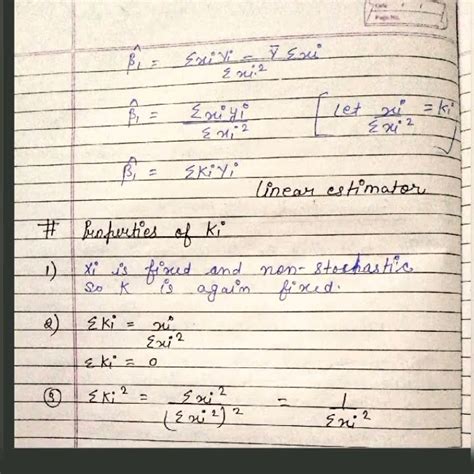 Page No.
β̂₁ = Σxiyi − ȳ Σxi / Σxi²
β̂₁ = Σxiyi / Σxi² [Let xi / Σxi² = Ki]
β̂₁ = ΣKiYi
linear estimator
# Properties of Ki
1) Xi is fixed and non-stochastic
so K is again fixed.
2) ΣKi = xi / Σxi²
ΣKi = 0
③ ΣKi² = Σxi² / (Σxi²)² = 1 / Σxi²